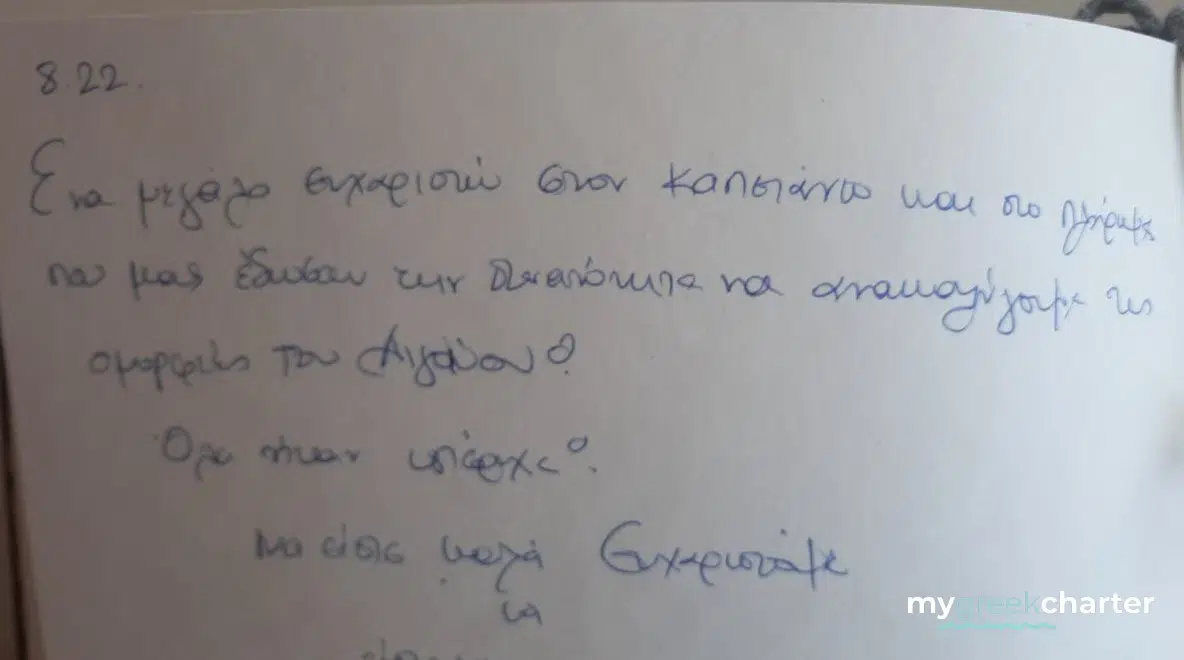 8.22.
Ένα μεγάλο ευχαριστώ στον καπετάνιο και στο πλήρωμα
που μας έδωσαν την δυνατότητα να ανακαλύψουμε τις
ομορφιές του Αιγαίου!
Όλα ήταν υπέροχα!
Να είστε καλά Ευχαριστούμε
να
mygreekcharter